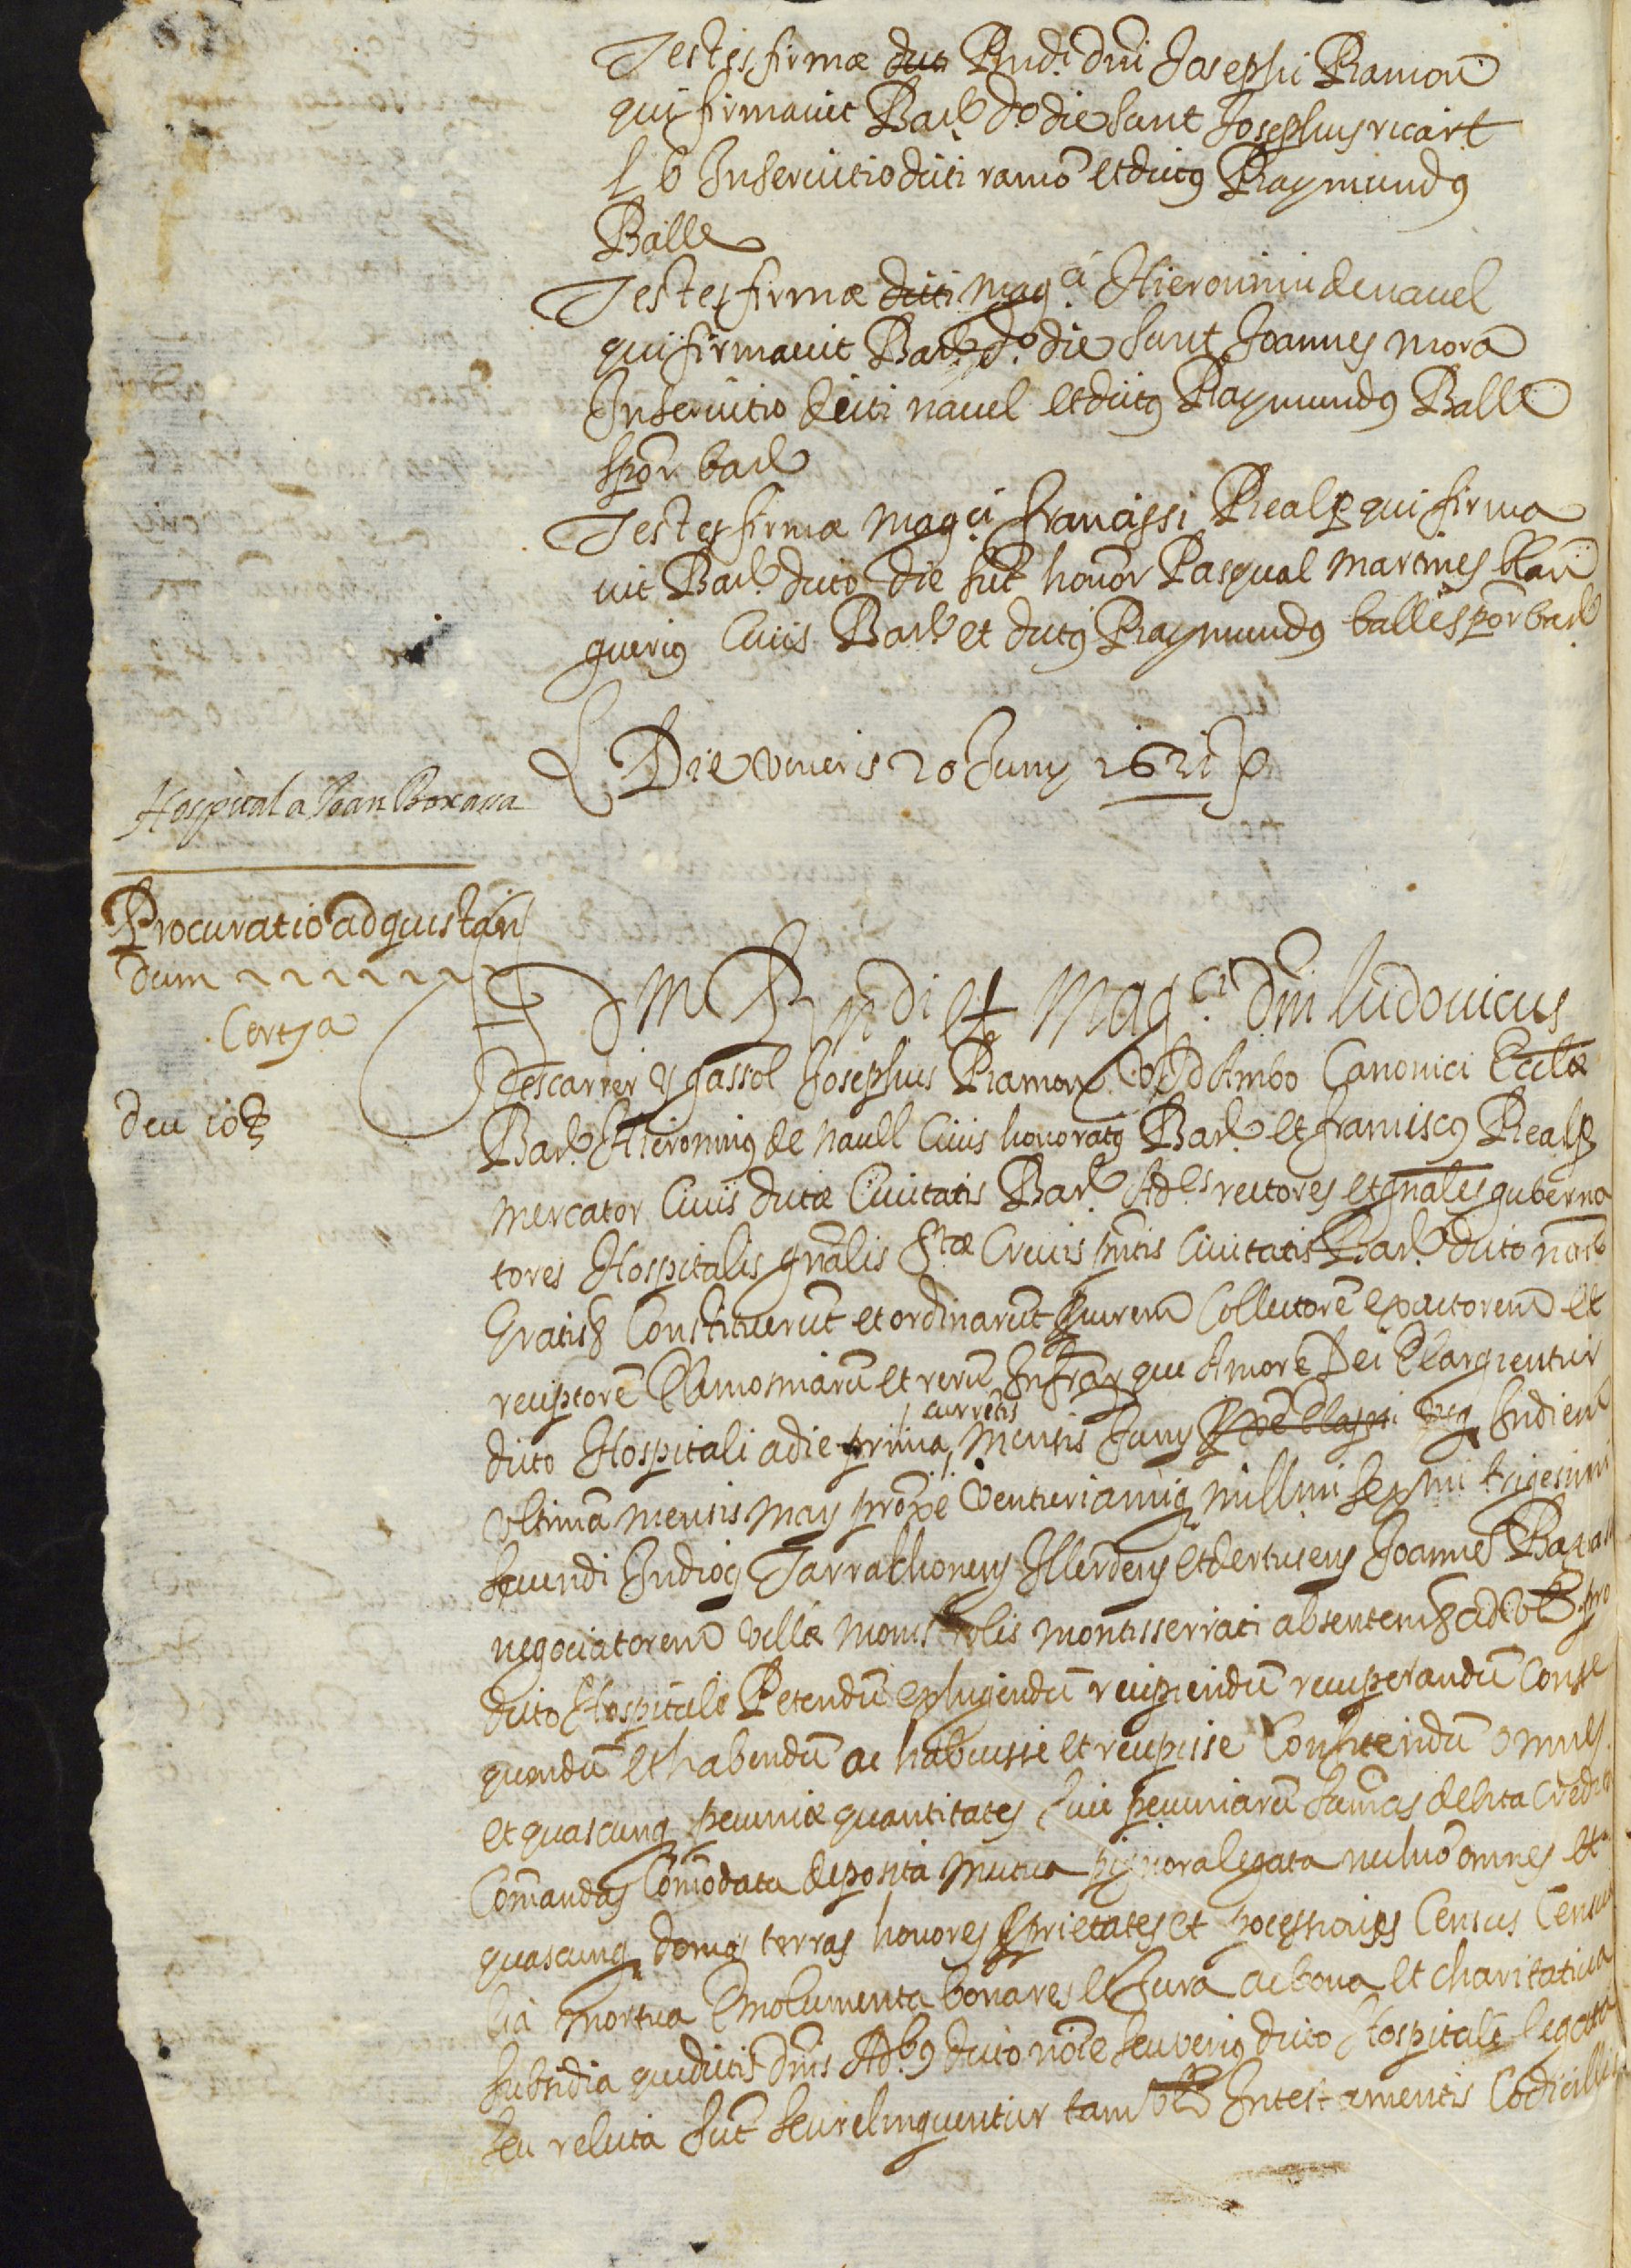 Testes firmæ dicti Rndi. dni Josephi Ramon
qui firmavit Barᵉ. do. die sunt Josephus ricart
l b Inservitio dicti ramō et dictꝯ Raymundꝯ
Balle
Testes firmæ dicti magci. Hieronimi denavel
qui firmavit Barᵉ. do. die sunt Joannes mora
Inservitio dicti navel et dictꝯ Raymundꝯ Balle
spōr barᵉ
Testes firmæ magci. francissi Realp qui firma
vit Barᵉ. dicto die sūt honōr Pasqual martines
gueriꝯ Civis Barᵉ et dictꝯ Raymundꝯ balle spōr barᵉ
Die veneris 20 Juny 1631
Hospital a Joan Boxara
Procuratio adquistan
dum
Certa
deu ioB
Dm Rndi et Magci. dni ludovicus
descarrer y gassol Josephus Ramon V J D Ambo Canonici Ecclæ
Barᵉ. Hieronimꝯ de navell Civis honoratꝯ Barᵉ et franciscꝯ Realp
mercator Civis dictæ Civitatis Barᵉ. Ad.es rectores et gnales guberna
tores Hospitalis gnalis Stæ Crucis pntis Civitatis Barᵉ dicto noīe
Gratis & Constituerūt et ordinarūt Procurem Collectorē exactorem et
receptorē Elemosinarū et rerū Infrar que Amore Dei Elargientur
dicto Hospitali a die prima currētis mensis Juny usq Indiem
Ultimā mensis may prōxe venturi anniq millmi sexmi trigesimi
secundi Indiocꝯ Tarrachonens Illerdens et dertusens Joanne Boxara
negociatorem villæ monistrolis montisserrati absentem & ad Vts. pro
dicto Hospitale Petendū exhigendū recipiendū recuperandū Conse
quendū et habendū ac habuisse et recepisse Confitendū omnes
et quascunq pecuniæ quantitates sive pecuniarū sumas debita Credita
Comandas Comodata deposita mutua pignora legata nechō omnes et
quascunq domos terras honores Proprietates et possessiones Census Censua
lia mortua Emolumenta bona res et Jura ac bona et charitativa
subsidia quedictis dnis Ad.bꝯ dicto noīe seu veriꝯ dicto Hospitali legata
seu relicta sūt seu relinquentur tam Vts. Intestamentis Codicillis